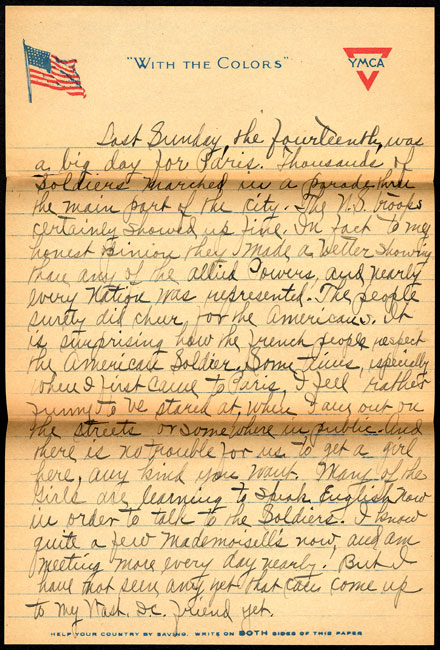 "WITH THE COLORS"
YMCA
Last Sunday, the fourteenth, was
a big day for Paris. Thousands of
Soldiers marched in a parade thru
the main part of the city. The U.S. troops
certainly showed up fine. In fact to my
honest opinion they made a better showing
than any of the allied Powers, and nearly
every Nation was represented. The people
surely did cheer for the Americans. It
is surprising how the French people respect
the American Soldier. Some times, especially
when I first came to Paris, I feel rather
funny to be stared at, while I am out on
the streets or somewhere in public. And
there is no trouble for us to get a girl
here, any kind you want. Many of the
girls are learning to speak English now
in order to talk to the Soldiers. I know
quite a few Mademoisell's now, and am
meeting more every day nearly. But I
have not seen any yet that can come up
to my Wash. D.C. friend yet.
HELP YOUR COUNTRY BY SAVING. WRITE ON BOTH SIDES OF THIS PAPER